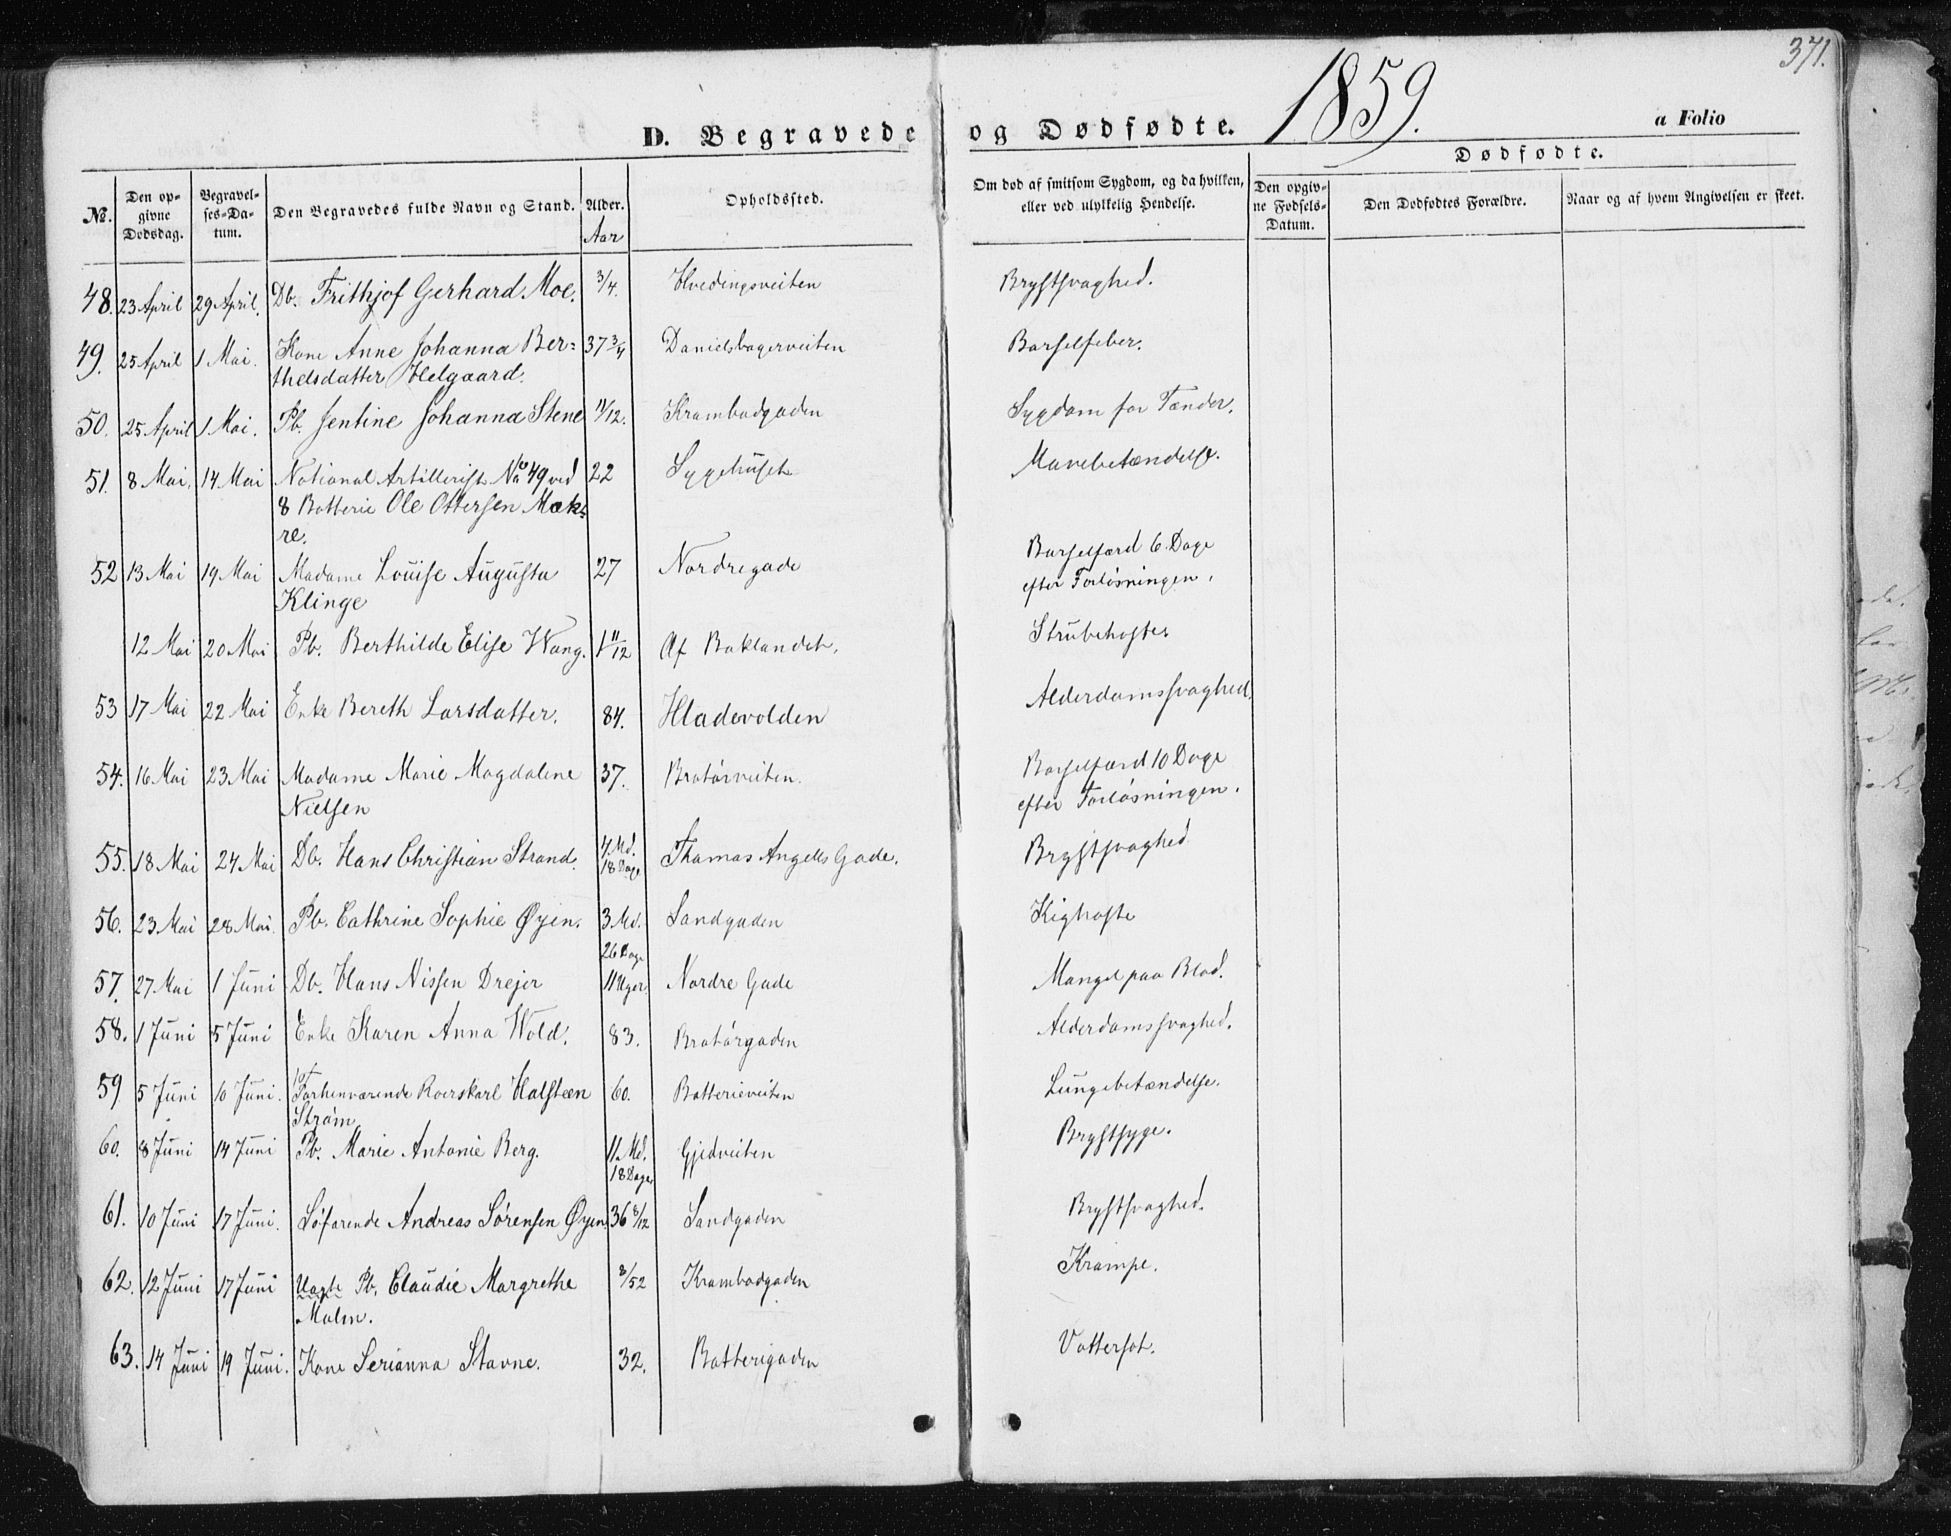 371.
1859.
D. Begravede og Dødfødte.
a Folio
Dødfødte.
No. Den opgivne Dødsdag. Begravelses-Datum. Den Begravedes fulde Navn og Stand. Alder. Opholdssted. Om død af smitsom Sygdom, og da hvilken, eller ved ulykkelig Hendelse. Den opgivne Fødsels-Datum. Den Dødfødtes Forældre. Naar og af hvem Angivelsen er skeet.
Aar
48. 23 April 29 April. Db. Frithjof Gerhard Moe. 3/4. Hvedingsveiten Brystsvaghed.
49. 25 April 1 Mai. Kone Anne Johanna Ber= 37 3/4 Danielsbagerveiten Barselfeber.
thelsdatter Helgaard.
50. 25 April 1 Mai. Pb. Jentine Johanna Stene 11/12. Krambodgaden Sygdom for Tænder.
51. 8 Mai. 14 Mai National Artillerist No 49 ved 22 Sygehuset Mavebetændelse.
8 Batterie Ole Ottersen Mæk=
re.
52 13 Mai 19 Mai Madame Louise Augusta 27 Nordregade Barselfærd 6 Dage
Klinge efter Forløsningen.
12 Mai 20 Mai Pb. Berthilde Elise Wang. 1 11/12 Af Baklandet. Strubehoste
53 17 Mai 22 Mai Enke Bereth Larsdatter. 84. Hladevolden Alderdomssvaghed.
54. 16 Mai 23 Mai Madame Marie Magdalene 37. Bratørveiten. Barselfærd 10 Dage
Nielsen efter Forløsningen.
55. 18 Mai 24 Mai Db. Hans Christian Strand. 4 Md. 18 Dage Thomas Angells Gade. Brystsvaghed
56. 23 Mai 28 Mai. Pb. Cathrine Sophie Øyen. 3 Md. 26 Dage Sandgaden Kighoste
57. 27 Mai 1 Juni Db. Hans Nissen Drejer 11 Uger. Nordre Gade Mangel paa Blod.
58. 1 Juni 5 Juni Enke Karen Anna Wold. 83. Bratørgaden Alderdomssvaghed.
59 5 Juni 10 Juni. Forhenværende Roerskarl Halsteen 60. Batterieveiten Lungebetændelse.
Strøm
60. 8 Juni 14 Juni Pb. Marie Antonie Berg. 11 Md. 18 Dage Gjedveiten Brystsyge.
61. 10 Juni 17 Juni. Søfarende Andreas Sørensen Øyen 36 8/12 Sandgaden Brystsvaghed.
62. 12 Juni 17 Juni Uægte Pb. Claudie Margrethe 3/52 Krambodgaden Krampe.
Malm.
63. 14 Juni 19 Juni. Kone Serianna Stavne. 32. Batterigaden Vattersot.